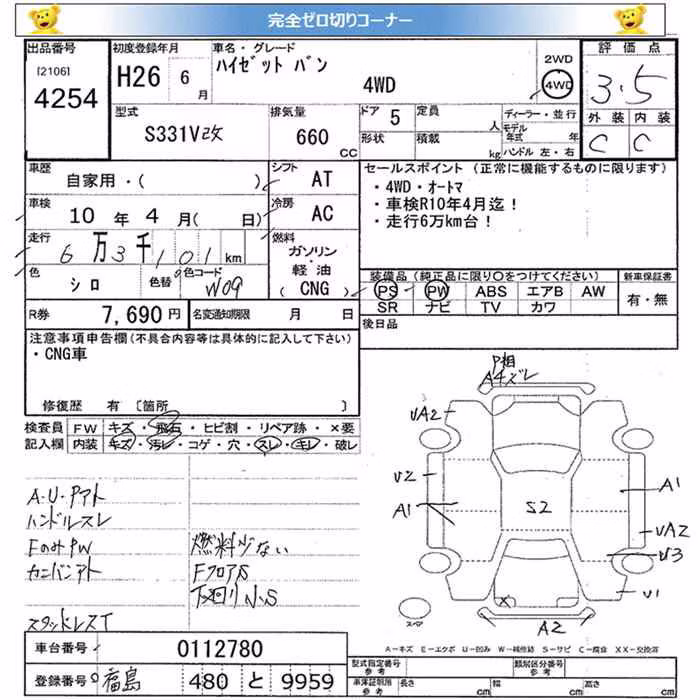 完全ゼロ切りコーナー
出品番号
[2106]
4254
初度登録年月
H26 6月
車名・グレード
ハイゼット バン
4WD
2WD
4WD
評価点
3.5
外装 内装
C C
型式
S331V改
排気量
660 CC
ドア 5
定員 人
形状
積載 kg
ディーラー・並行
モデル年式 年
ハンドル 左・右
車歴
自家用・( )
シフト
AT
車検
10年4月( 日)
冷房
AC
走行
6万3千101km
燃料
ガソリン・軽油
(CNG)
色
シロ
色替
色コード
W09
R券 7,690円
名変通知期限 月 日
セールスポイント (正常に機能するものに限ります)
・4WD・オートマ
・車検R10年4月迄!
・走行6万km台!
装備品(純正品に限り〇をつけてください)
PS PW ABS エアB AW
SR ナビ TV カワ
新車保証書
有・無
後日品
注意事項申告欄(不具合内容等は具体的に記入して下さい)
・CNG車
修復歴 有 〔箇所 〕
検査員記入欄
FW キズ・飛石・ヒビ割・リペア跡・×要
内装 キズ・汚レ・コゲ・穴・スレ・キレ・破レ
A・U・Pアト
ハンドルスレ
FのみPW
カンバンアト
スタッドレスT
燃料少ない
FフロアS
下廻り小S
P相
A4ズレ
UA2
U2
A1
S2
A1
UA2
U3
U1
A2
スペア
A-キズ E-エクボ U-凹み W-補修跡 S-サビ C-腐食 XX-交換済
車台番号 0112780
登録番号 福島 480 と 9959
型式指定番号 参考
類別区分番号 参考
車体証明用 参考
長さ cm 幅 cm 高さ cm